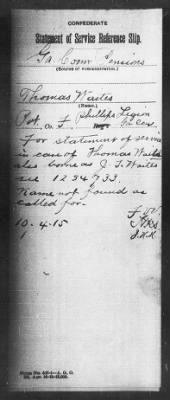 CONFEDERATE
Statement of Service Reference Slip.
Ga. Comr Pensions
(SOURCE OF
Thomas Waites
(Name.)
Phillips Legion
Pvt. Co. F.
For statement of service
in case of Thomas Waites
also borne as J. T. Waites
see 1234733.
Name not found as
called for.
10-4-15
1